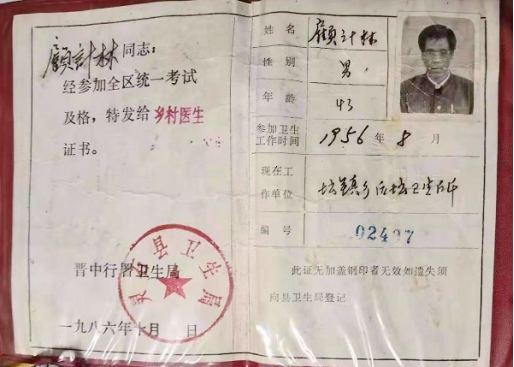 顧計林同志：
经参加全区统一考试
及格，特发给乡村医生
证书。
晋中行署卫生局
县卫生局
一九八六年十月 日
姓名 顧計林
性别 男
年龄 43
参加卫生工作时间 1956年8月
现在工作单位
编号 02497
此证无加盖钢印者无效如遗失须
向县卫生局登记